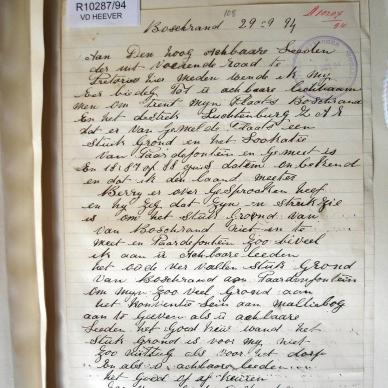 R10287/94
VD HEEVER
108
Boschrand 29-9 94
Aan Den hoog Achbaare Leeden
der uit voerende road te
Pretorea hier meden wende ik my
Eer biedig Tot u achbaare lichhaam
men om Trent myn Plaats Boschrand
En het destrik Lichtenburg Z A R
dat er van Gemelde Plaats een
stuk Grond en het Lookatie
van Paardefontein en Gemeet is
En 18:87 of 88 juis datem on bekend
en dat ik den land meeter
Berry er over Gesprooken heef
en hy zeg dat zyn en strukzie
is om het stuk Groond van
van Boschrand niet in te
meet en Paardefontein Zoo biveel
ik aan u Achbaare leeden
het oode ver vallen stuk Grond
van Boschrand aan Paardenfontein
om myn Zoo veel Grond aan
het
aan te Geeven als u achbaare
Leeden het Goed keur wand het
stuk Grond is voor my niet
Zoo nuttug als voor het dorp
En als u achbaare leeden
het Goed of af keuren